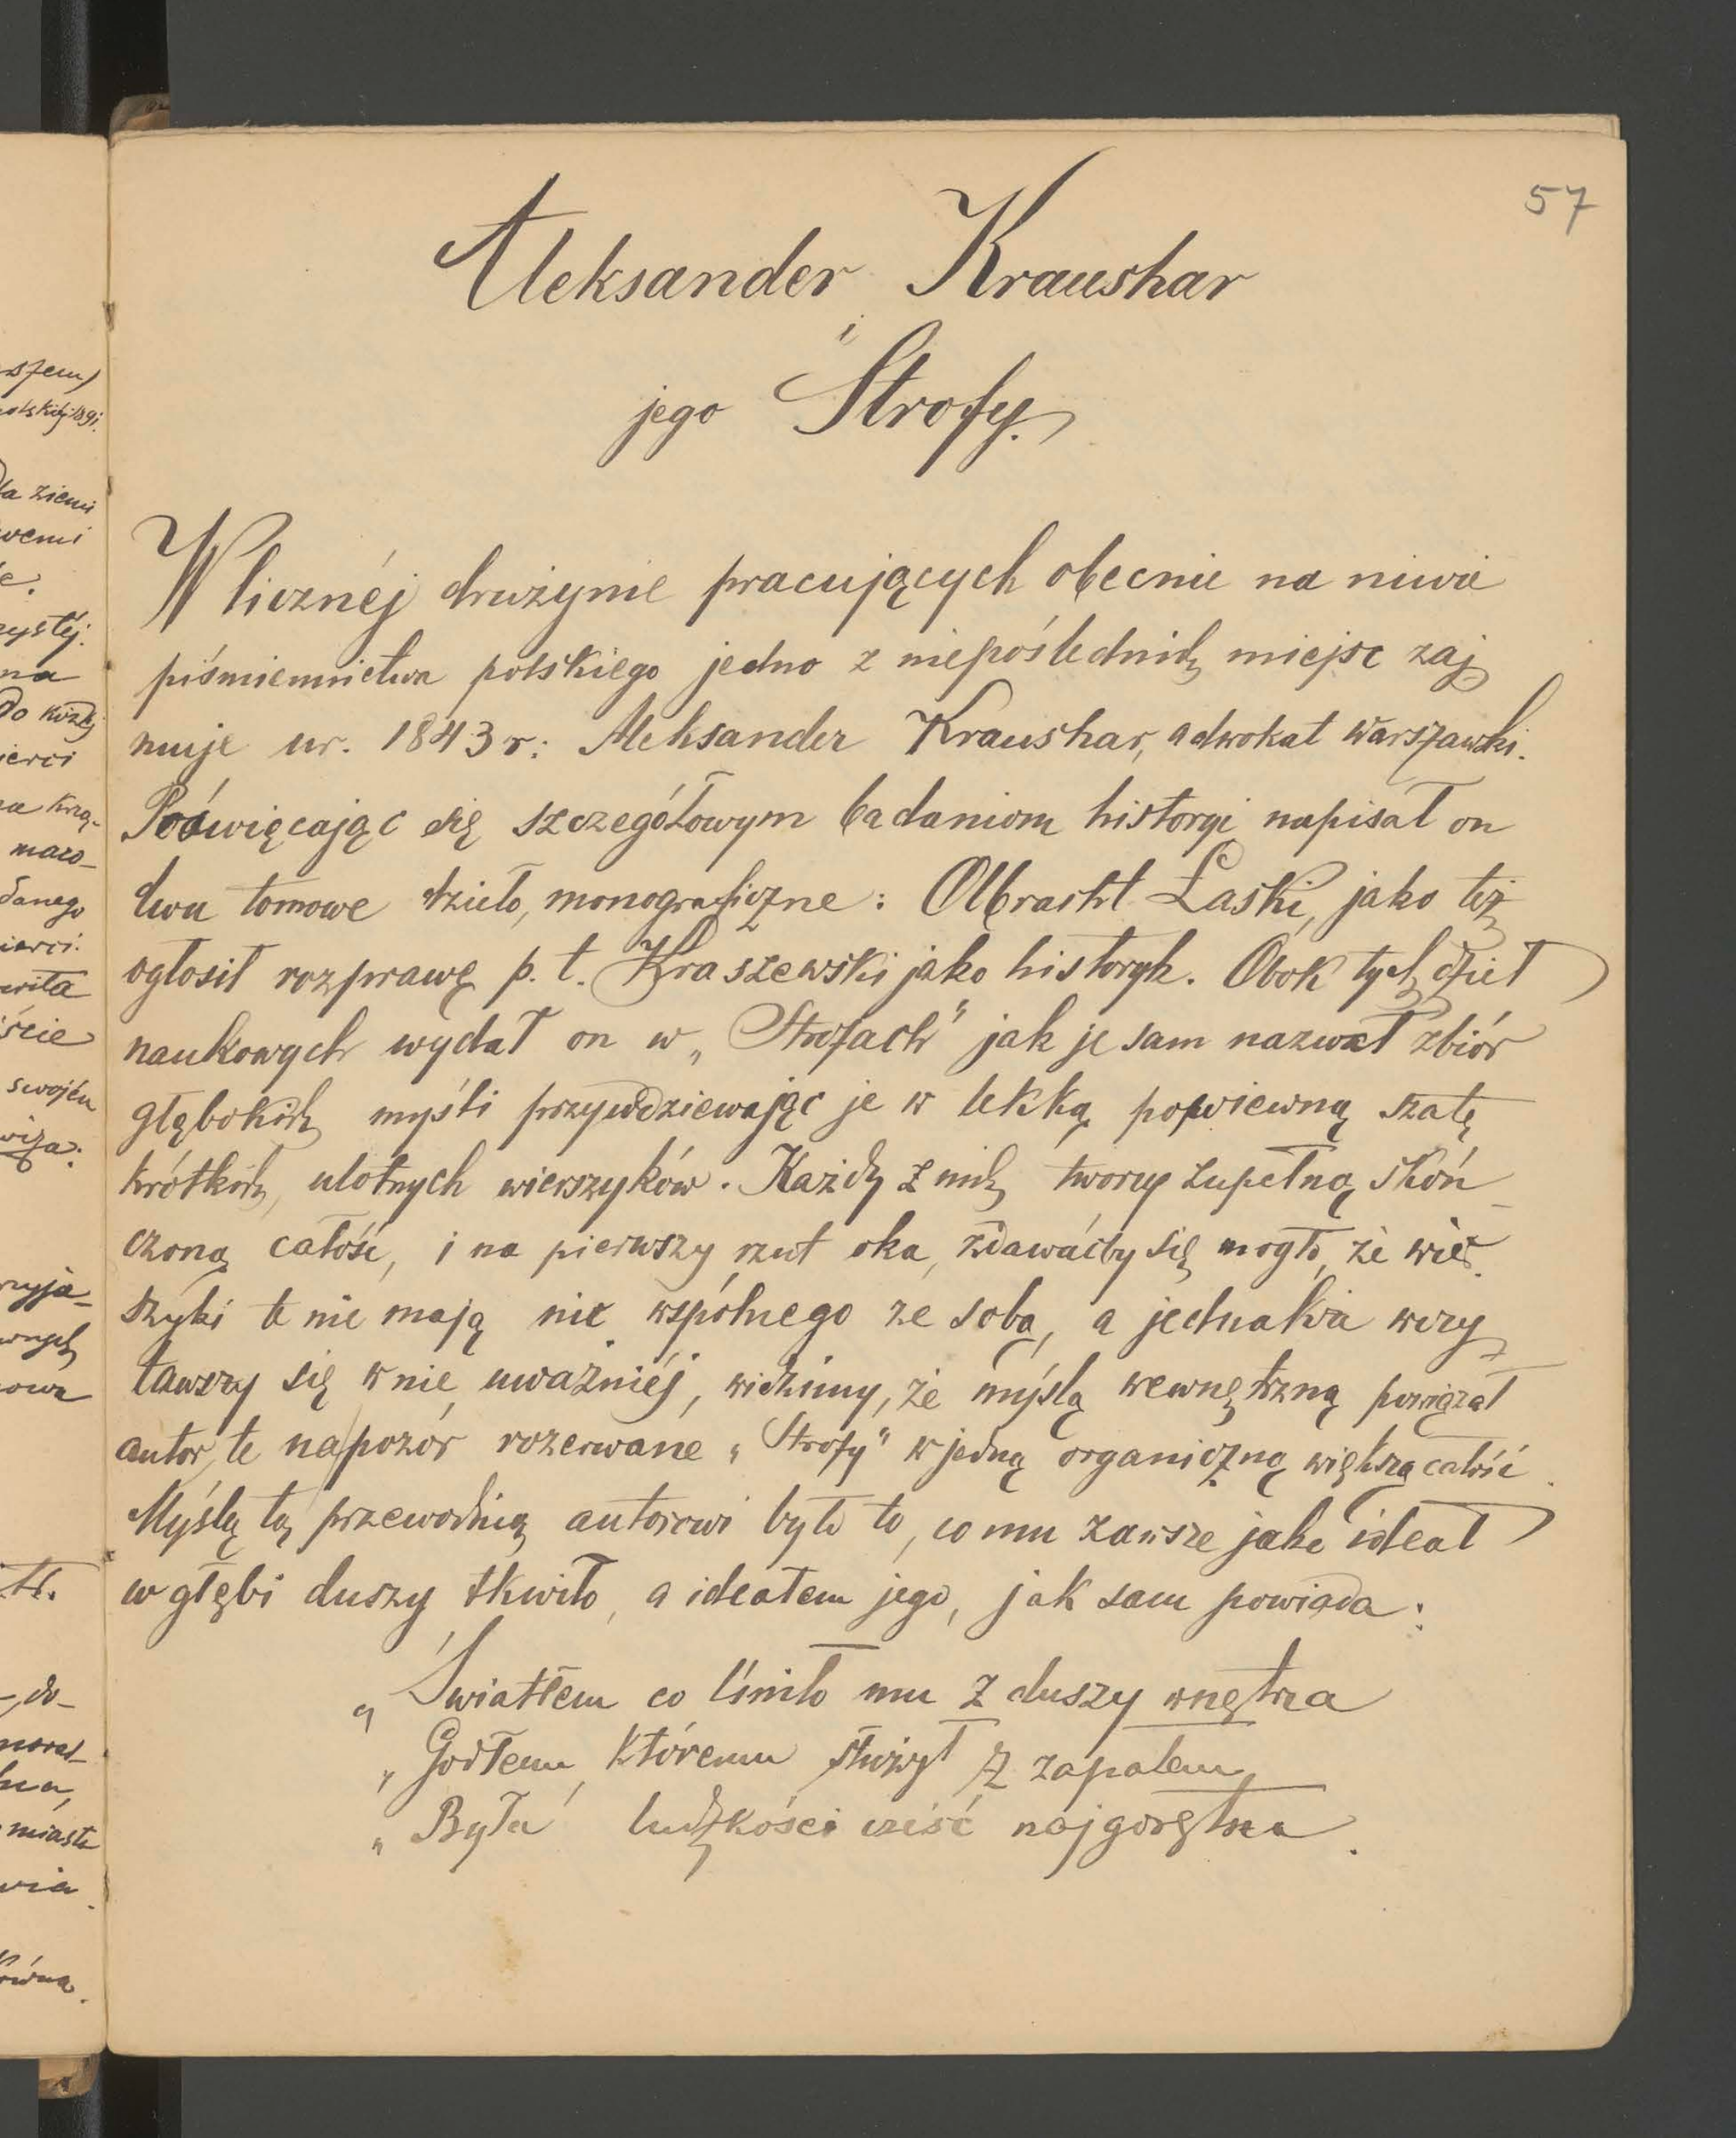 57
Aleksander Kraushar
i
jego Strofy.
W licznéj drużynie pracujących obecnie na niwie
piśmiennictwa polskiego jedno z niepoślednich miejsc zaj
muje ur. 1843 r: Aleksander Kraushar, adwokat warszawski.
Poświęcając się szczegółowym badaniom historyi napisał on
dwu tomowe dzieło, monograficzne: Olbracht Łaski, jako też
ogłosił rozprawę p. t. Kraszewski jako historyk. Obok tych dzieł
naukowych wydał on w „Strofach" jak je sam nazwał zbiór
głębokich myśli przywdziewając je w lekką powiewną szatę
krótkich, ulotnych wierszyków. Każdy z nich tworzy zupełną skoń
czoną całość, i na pierwszy rzut oka, zdawaćby się mogło, że wier
szyki te nie mają nic wspólnego ze sobą, a jednakże wczy
tawszy się w nie uważniéj, widzimy, że myślą wewnętrzną powiązał
autor te napozór rozerwane „Strofy" w jedną organiczną większą całość.
Myślą tą przewodnią autorowi było to, co mu zawsze jako ideał
w głębi duszy tkwiło, a ideałem jego, jak sam powiada:
„Światłem co lśniło mu z duszy wnętrza
„Godłem, któremu służył z zapałem,
„Była ludzkości cześć najgorętsza.
szem)
1891.
la ziemi
wemi
e.
zystéj.
na
do
ierci
danego
ierci.
wita
ście
swojém
owa
do-
miasta
wia